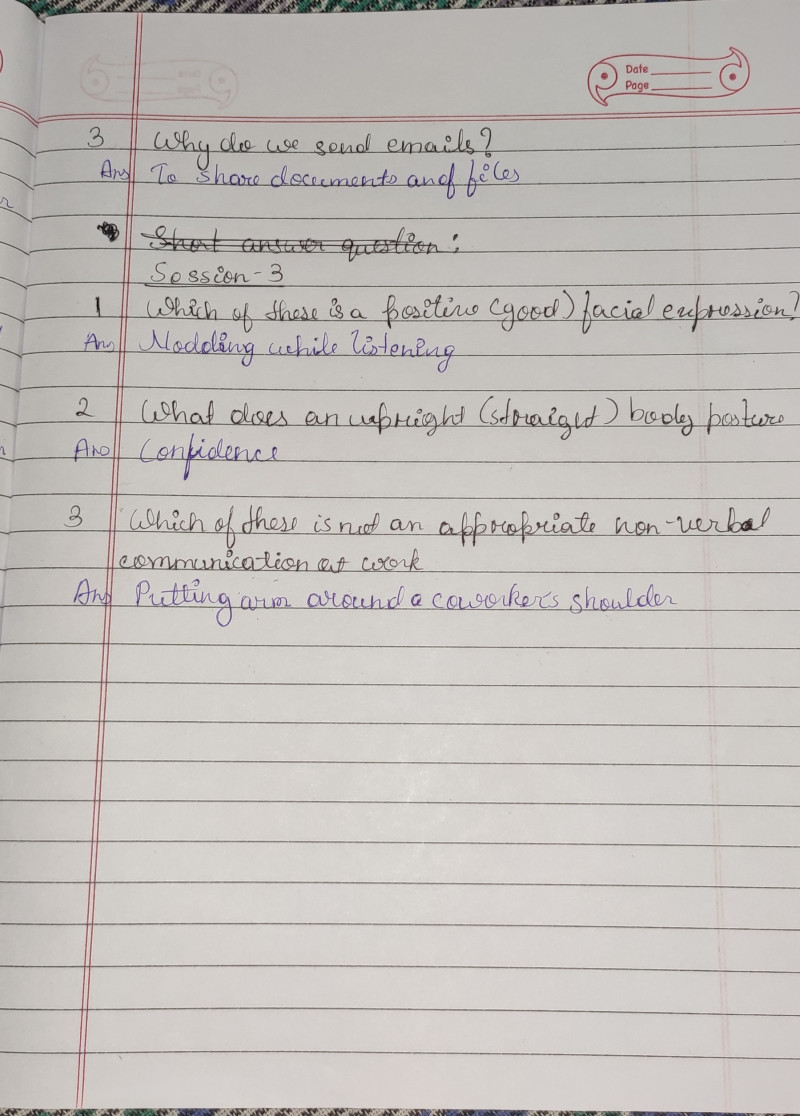 Date
Page
3 Why do we send emails?
Ans To share documents and files
Short answer question:
Session-3
1 Which of these is a positive (good) facial expression?
Ans Nodding while listening
2 What does an upright (straight) body posture
Ans Confidence
3 Which of these is not an appropriate non-verbal
communication at work
Ans Putting arm around a coworker's shoulder